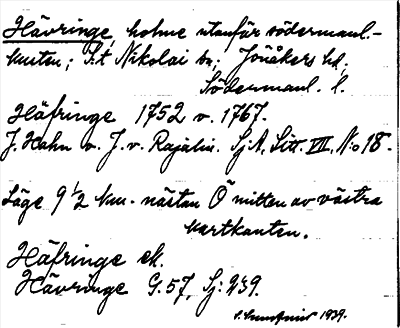 Hävringe, holme utanför södermanl.-
kusten; S:t Nikolai sn; Jönåkers hd,
Södermanl. l.
Häfringe 1752 v. 1767.
J. Hahn o. J. v. Rajalin. Sj.A, Litt. VII, No 18.
Läge 9 1/2 km. nästan Ö mitten av västra
kartkanten.
Häfringe ek.
Hävringe G.57, Sj: 239.
1939.